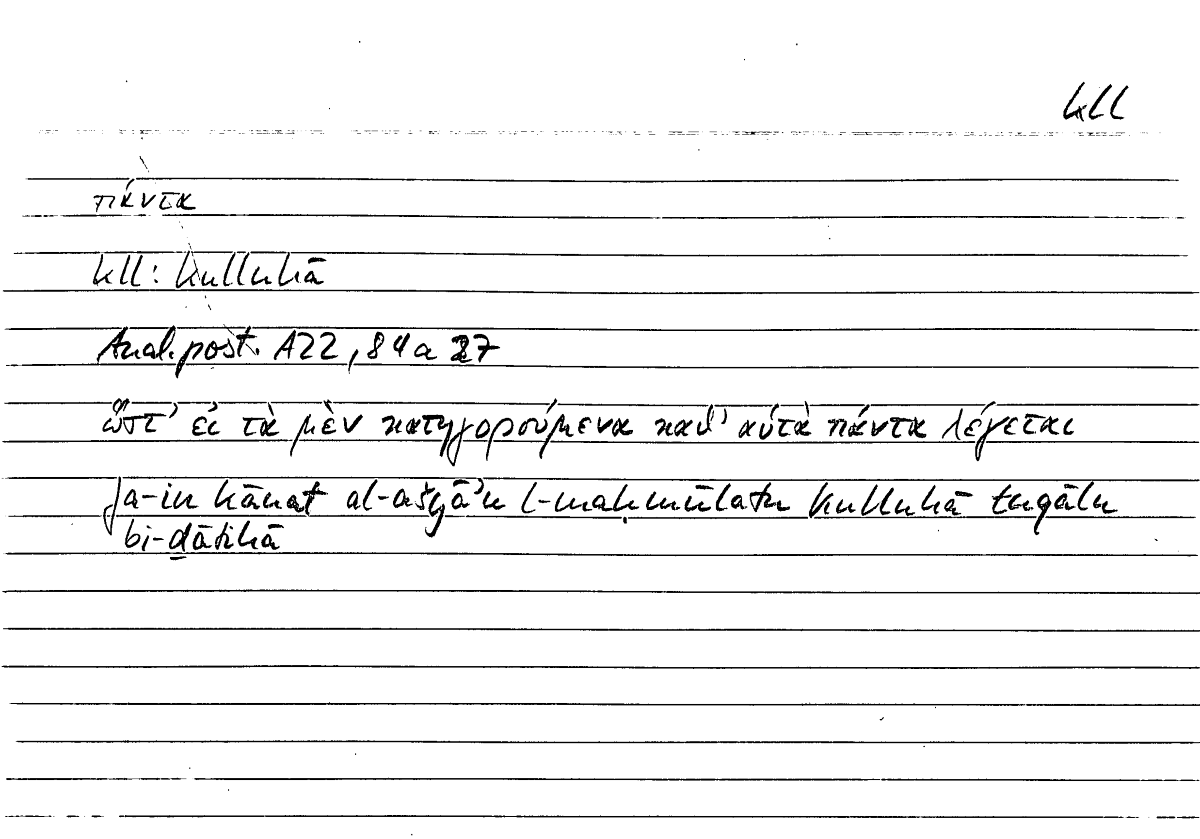 kll
πάντα
kll: kulluhā
Anal. post. A22, 84a 27
ὥστ' εἰ τὰ μὲν κατηγορούμενα καϑ' αὑτὰ πάντα λέγεται
fa-in kānat al-ašyā'u l-maḥmūlatu kulluhā tuqālu
bi-ḏātihā